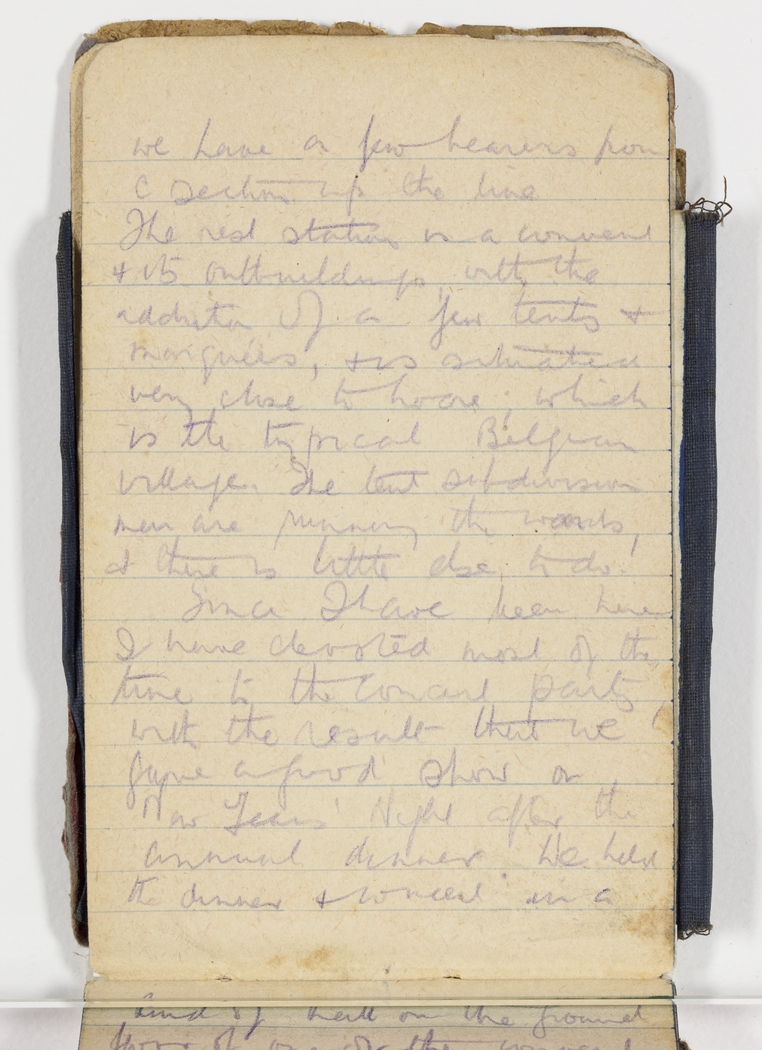 we have a few bearers from
C section up the line
The rest station is a convent
& its outbuildings, with the
addition of a few tents &
marquees, & is situated
very close to which
is the typical Belgian
village. The tent subdivision
men are running the wards,
& there is little else to do.
Since I have been here
I have devoted most of the
time to the Concert party
with the result that we
gave a good show on
New Years' Night after the
annual dinner. We held
the dinner & concert in a
kind of hall on the ground
floor of one of the convent